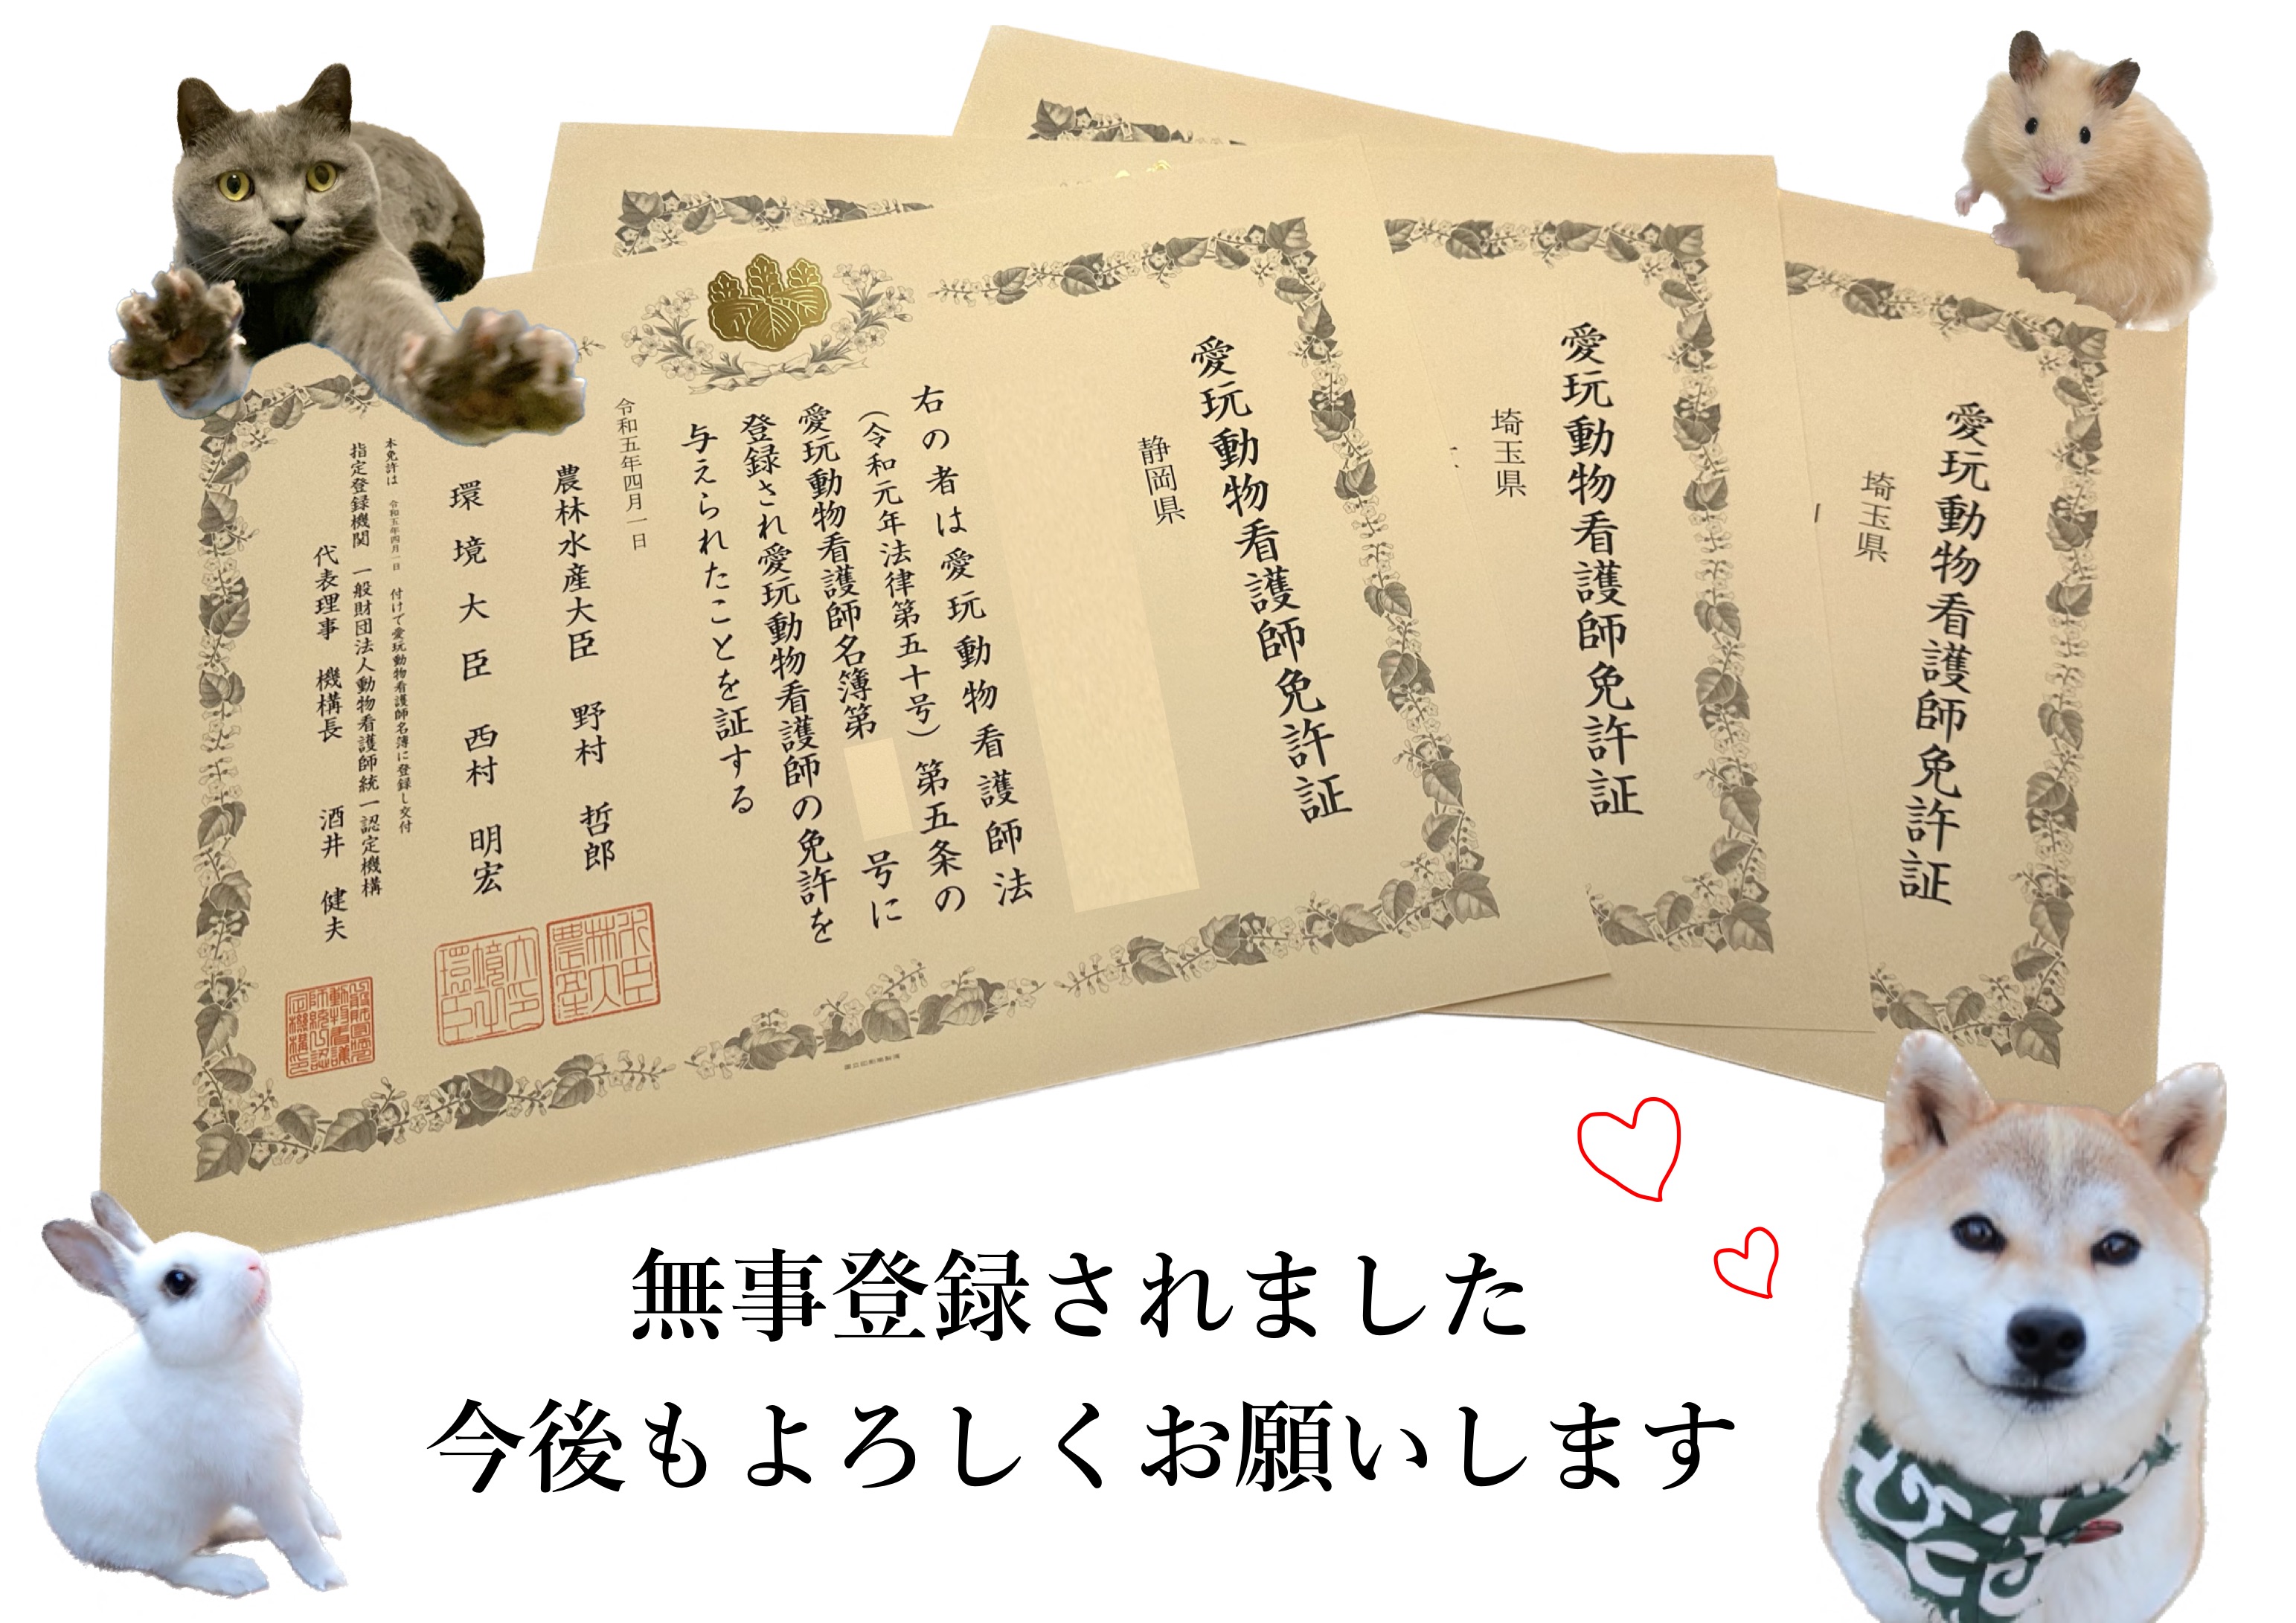 愛玩動物看護師免許証
静岡県
右の者は愛玩動物看護師法
(令和元年法律第五十号)第五条の
愛玩動物看護師名簿第 号に
登録され愛玩動物看護師の免許を
与えられたことを証する
令和五年四月一日
農林水産大臣 野村 哲郎
環境大臣 西村 明宏
本免許は 令和五年四月一日 付けで愛玩動物看護師名簿に登録し交付
指定登録機関 一般財団法人動物看護師統一認定機構
代表理事 機構長 酒井 健夫
愛玩動物看護師免許証
埼玉県
愛玩動物看護師免許証
埼玉県
無事登録されました
今後もよろしくお願いします